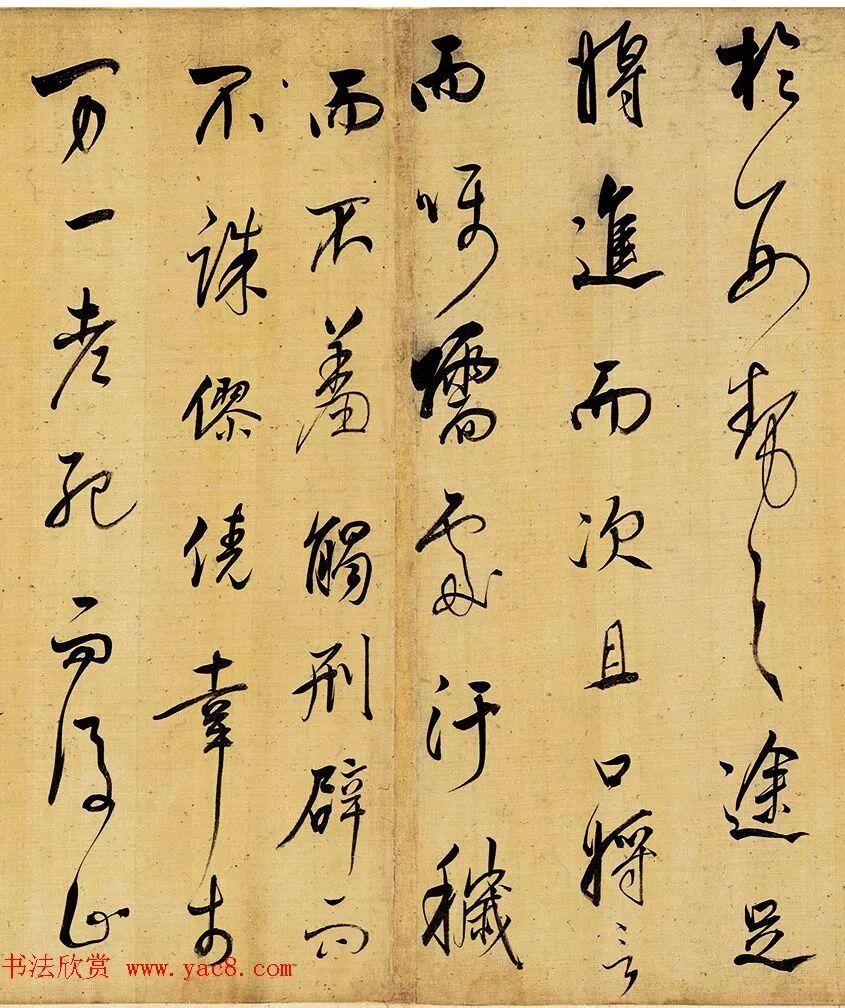 於勢之途足
將進而次且口將言
而囁嚅處汙穢
而不羞觸刑辟而
不誅僇僥幸於
万一老死而後止
书法欣赏 www.yac8.com